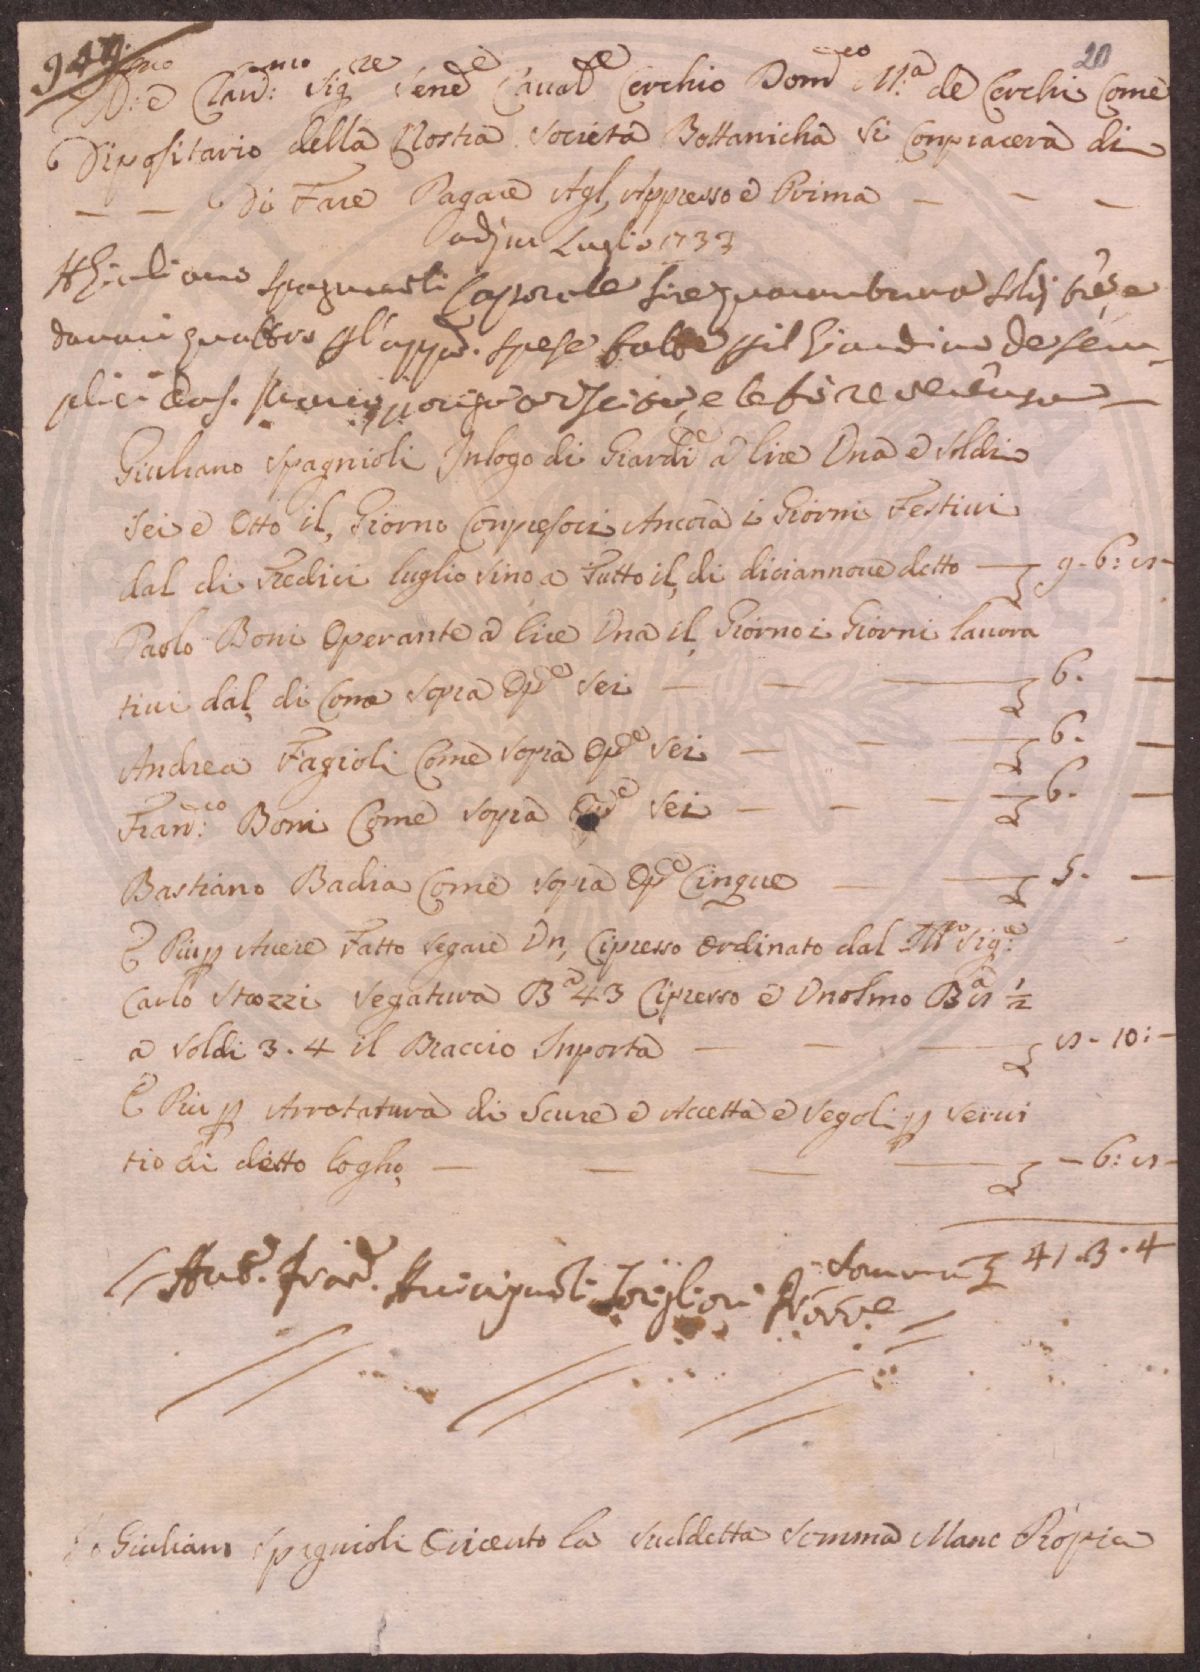 20
Ill.mo e Clar.mo Sig.re Sen.e Caval.e Cerchio Dom.co M.a de Cerchi Come
Dipositario della Nostra Societa Bottanicha si Conpiacera di
Di Fare Pagare Agl, Appresso e Prima
Luglio 1733
A Giuliano Spagnuoli Caporale lire quarantuna soldi tre, e
danari quattro p l'app.e spese fatte p il Giardino de sem
plici
Giuliano Spagnioli In logo di Giard.e a lire Una e Soldi
Sei e Otto il, Giorno Conpresoci Ancora i Giorni Festivi
dal di Tredici luglio sino a Tutto il, di diciannove detto 9 - 6: 8 -
Paolo Boni Operante a lire Una il, Giorno i Giorni lavora
tivi dal, di Come sopra Op.e Sei 6. —
Andrea Fagioli Come sopra Op.e Sei 6. —
Fran.co Boni Come sopra Op.e Sei 6. —
Bastiano Badia Come sopra Op.e Cinque 5. —
E Piu p Avere Fatto Segare Un, Cipresso Ordinato dal Sig.e
Carlo Strozzi Segatura B.a 43 Cipresso e Unolmo B.a 8 1/2
a Soldi 3 . 4 il Braccio Inporta 8 - 10: -
E Piu p Arrotatura di Scure e Accetta e Segoli p Servi
tio di detto logho, - 6: 8 -
Somma 41 . 3 . 4
Provv.e
Io Giuliano Spagnioli O ricevto la Suddetta Somma Mano Propia